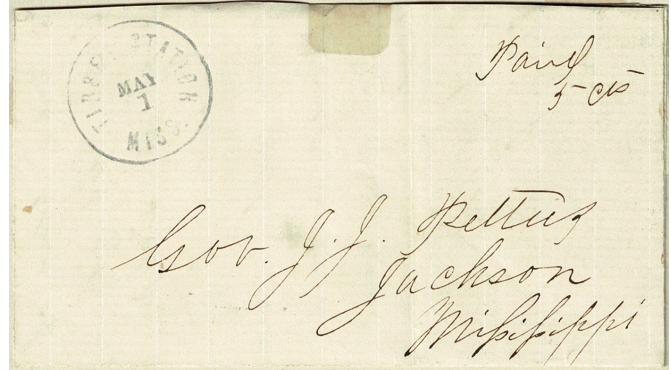 TIBBEE STATION
MAY
1
MISS.
Paid
5 cts
Gov. J. J. Pettus
Jackson
Mississippi